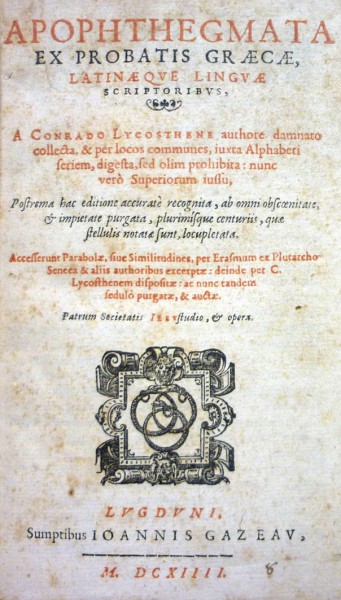 APOPHTHEGMATA
EX PROBATIS GRÆCÆ,
LATINÆQVE LINGVÆ
SCRIPTORIBVS,
A CONRADO LYCOSTHENE authore damnato
collecta, & per locos communes, iuxta Alphabeti
seriem, digesta, sed olim prohibita: nunc
verò Superiorum iussu,
Postrema hac editione accuratè recognita, ab omni obscœnitate,
& impietate purgata, plurimisque centuriis, quæ
stellulis notatæ sunt, locupletata.
Accesserunt Parabolæ, siue Similitudines, per Erasmum ex Plutarcho
Seneca & aliis authoribus excerptæ: deinde per C.
Lycosthenem dispositæ: ac nunc tandem
sedulò purgatæ, & auctæ.
Patrum Societatis IESV studio, & opera.
LVGDVNI.
Sumptibus IOANNIS GAZEAV,
M. DCXIIII.
8